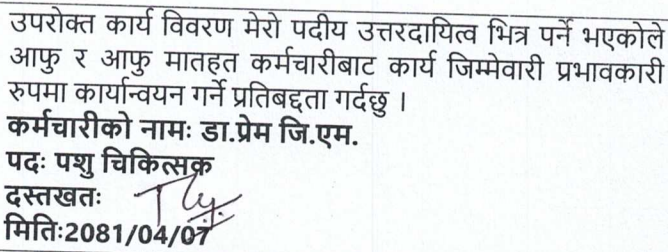 उपरोक्त कार्य विवरण मेरो पदीय उत्तरदायित्व भित्र पर्ने भएकोले
आफु र आफु मातहत कर्मचारीबाट कार्य जिम्मेवारी प्रभावकारी
रुपमा कार्यान्वयन गर्ने प्रतिबद्दता गर्दछु ।
कर्मचारीको नामः डा.प्रेम जि.एम.
पदः पशु चिकित्सक
दस्तखतः
मितिः2081/04/07